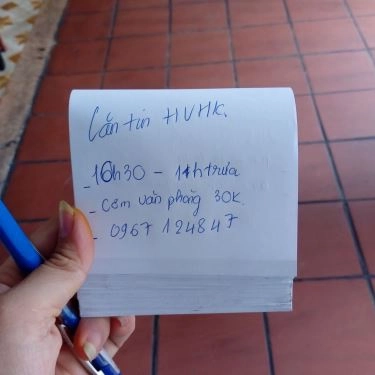 Căn tin HVHK.
- 10h30 - 11h trưa
- Cơm văn phòng 30K.
- 0967 124847